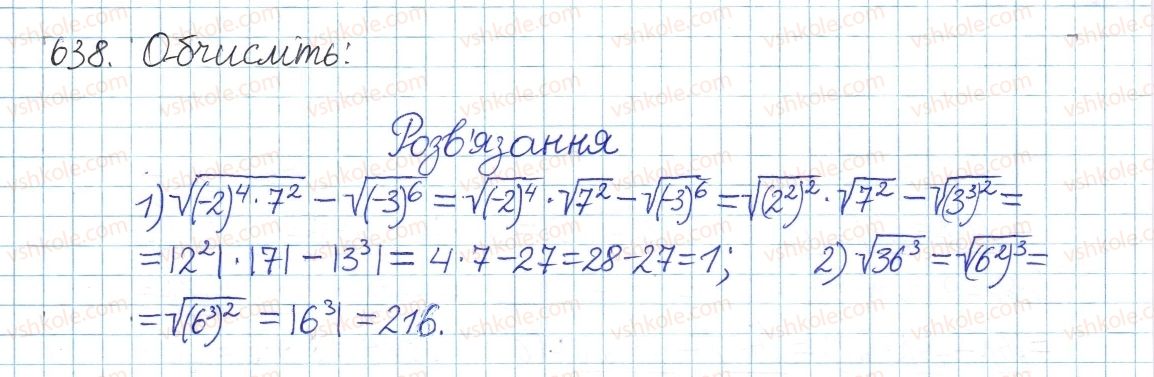 638. Обчисліть:
Розв'язання
1) √((-2)⁴ · 7²) - √((-3)⁶) = √((-2)⁴) · √(7²) - √((-3)⁶) = √((2²)²) · √(7²) - √((3³)²) =
= |2²| · |7| - |3³| = 4 · 7 - 27 = 28 - 27 = 1; 2) √(36³) = √((6²)³) =
= √((6³)²) = |6³| = 216.